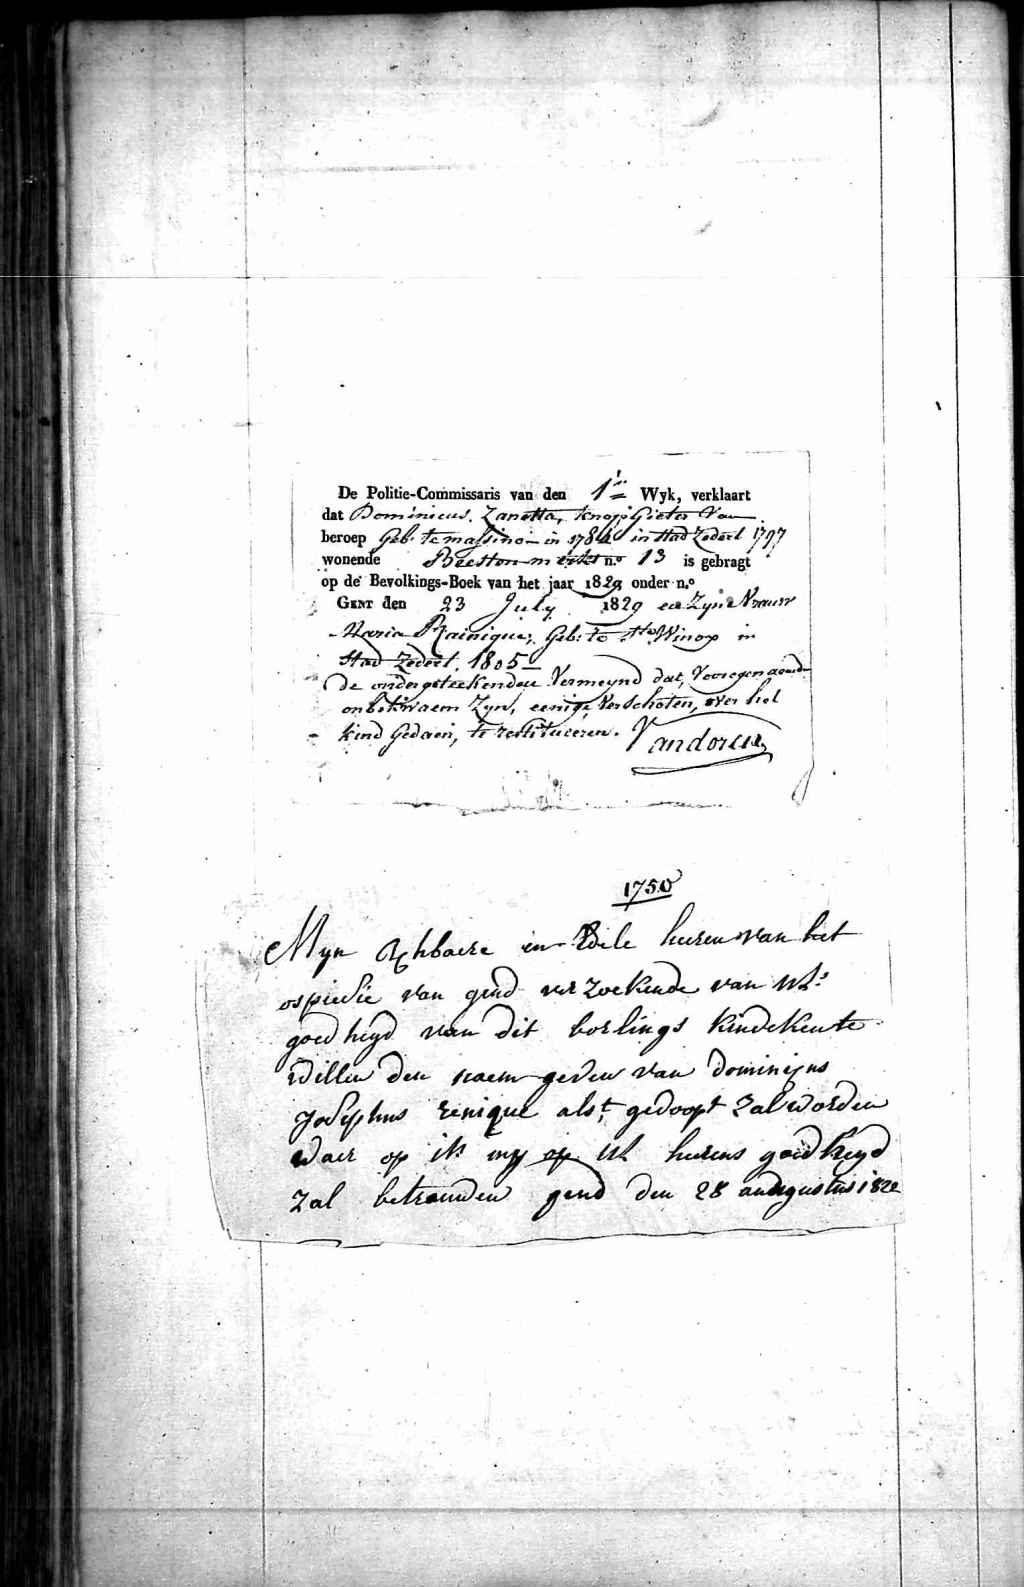 De Politie-Commissaris van den 1en Wyk, verklaart
dat Dominicus. Zanetta, knop Gieter Van
beroep Geb: te massino in 1784 in stad Zedert 1797
wonende Beeston merkt n.o 13 is gebragt
op de Bevolkings-Boek van het jaar 1829 onder n.o
GENT den 23 July 1829 en Zyne Vrauw
Maria Rainique, Geb: te St Winox in
Stad Zedert, 1805
De ondergeteekenden Vermeynd dat, Vooregenoemde
onbekwaem Zyn, eenige Verschoten, over het
kind Gedaen, te restitueeren. Vandoren
1750
Myn Achbaere en Edele heeren van het
ospiesie van gend verzoekende van Ul:s
goedheyd van dit borlings kindeken te
willen den naem geven van Dominiyns
Josephus renique als t gedoopt Zal worden
waer op ik my op Ul heerens goedheyd
Zal betrauden gend den 28 audugustus 1822